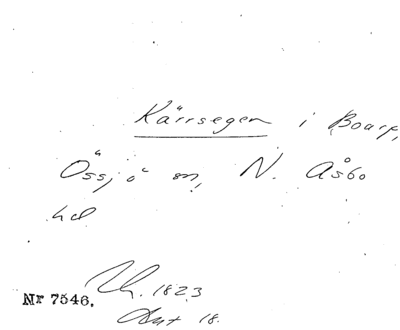 Kärrsegen i Boarp,
Össjö sn, N. Åsbo
hd
Nr 7546. Th. 1823
Ant 18.